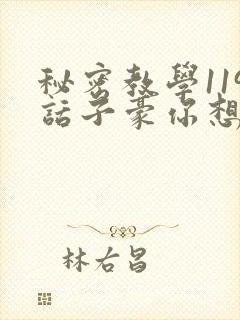 秘密教學119
話子豪你想
林右昌